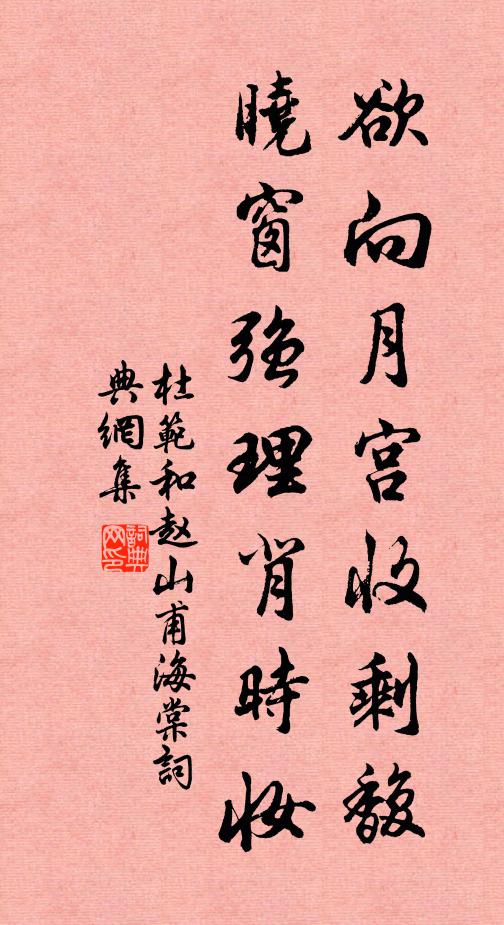 欲向月宫收剩馥
曉窗強理背時妝
杜範和赵山甫海棠詞
典網集
詞典网印